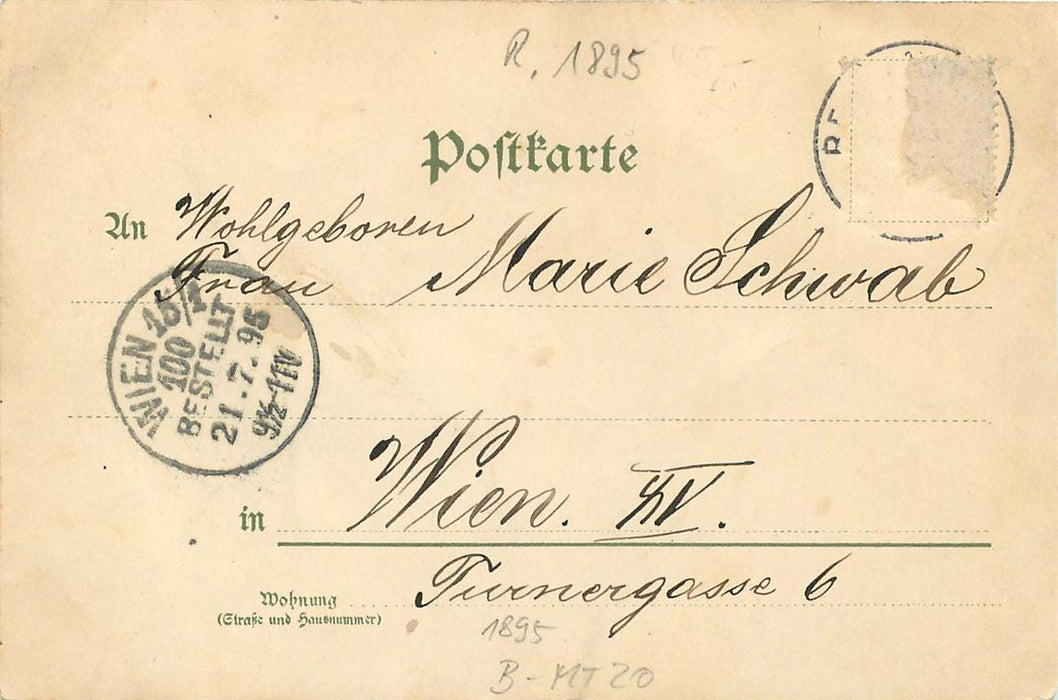 R. 1895
Postkarte
An Wohlgeboren
Frau Marie Schwab
WIEN 15/1
100
BESTELLT
21.7.95
9½-11V
Wien. XV.
in
Wohnung
(Straße und Hausnummer)
Turnergasse 6
1895
B-MT20